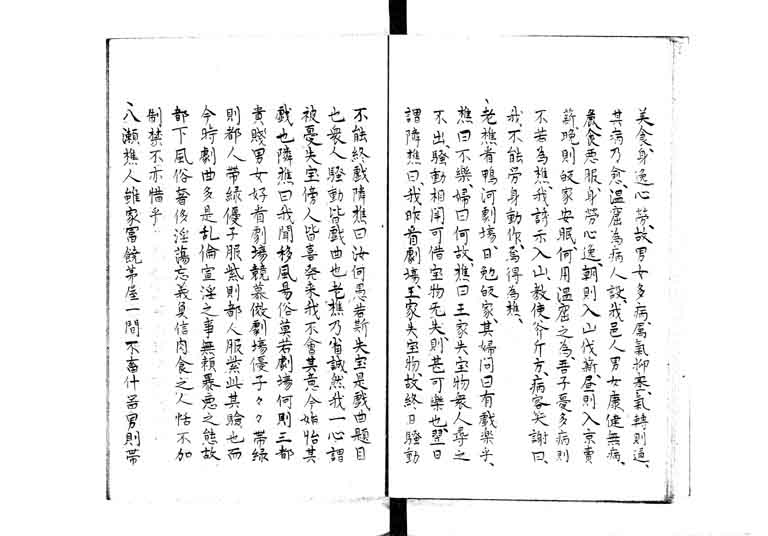 美食身逸心労故男女多病属氣抑塞氣轉則通、
其病乃愈温窟為病人設我邑人男女康健無病、
麁食悪服身労心逸朝則入山伐薪昼則入京賣
薪晩則皈家安眠何用温窟之為吾子憂多病則
不若為樵我請示入山教使斧斤方病客矢謝曰、
我不能労身動作焉得為樵、
、老樵看鴨河劇場日勉皈家其婦問曰有戯楽乎、
樵曰不樂婦曰何故樵曰王家失宝物衆人尋之
不出騒動相関可借宝物无失則甚可樂也翌日
謂隣樵曰我昨看劇場王家失宝物故終日騒動
不能終戯隣樵曰汝何愚若斯失宝是戯曲題目
也衆人騒動皆戯曲也老樵乃省誠然我一心謂
被憂失宝傍人皆喜発来我不會其意今始怡其
戯也隣樵曰我聞移風易俗莫若劇場何則三都
貴賤男女好看劇場競慕倣劇場優子々々帯緑
則都人帯緑優子服紫則都人服紫此其驗也而
今時劇曲多是乱倫宣淫之事無頼暴悪之態故
都下風俗奢侈淫蕩忘義負信肉食之人恬不加
制禁不亦惜乎
、八瀬樵人雖家富饒茅屋一間不畜什器男則帯